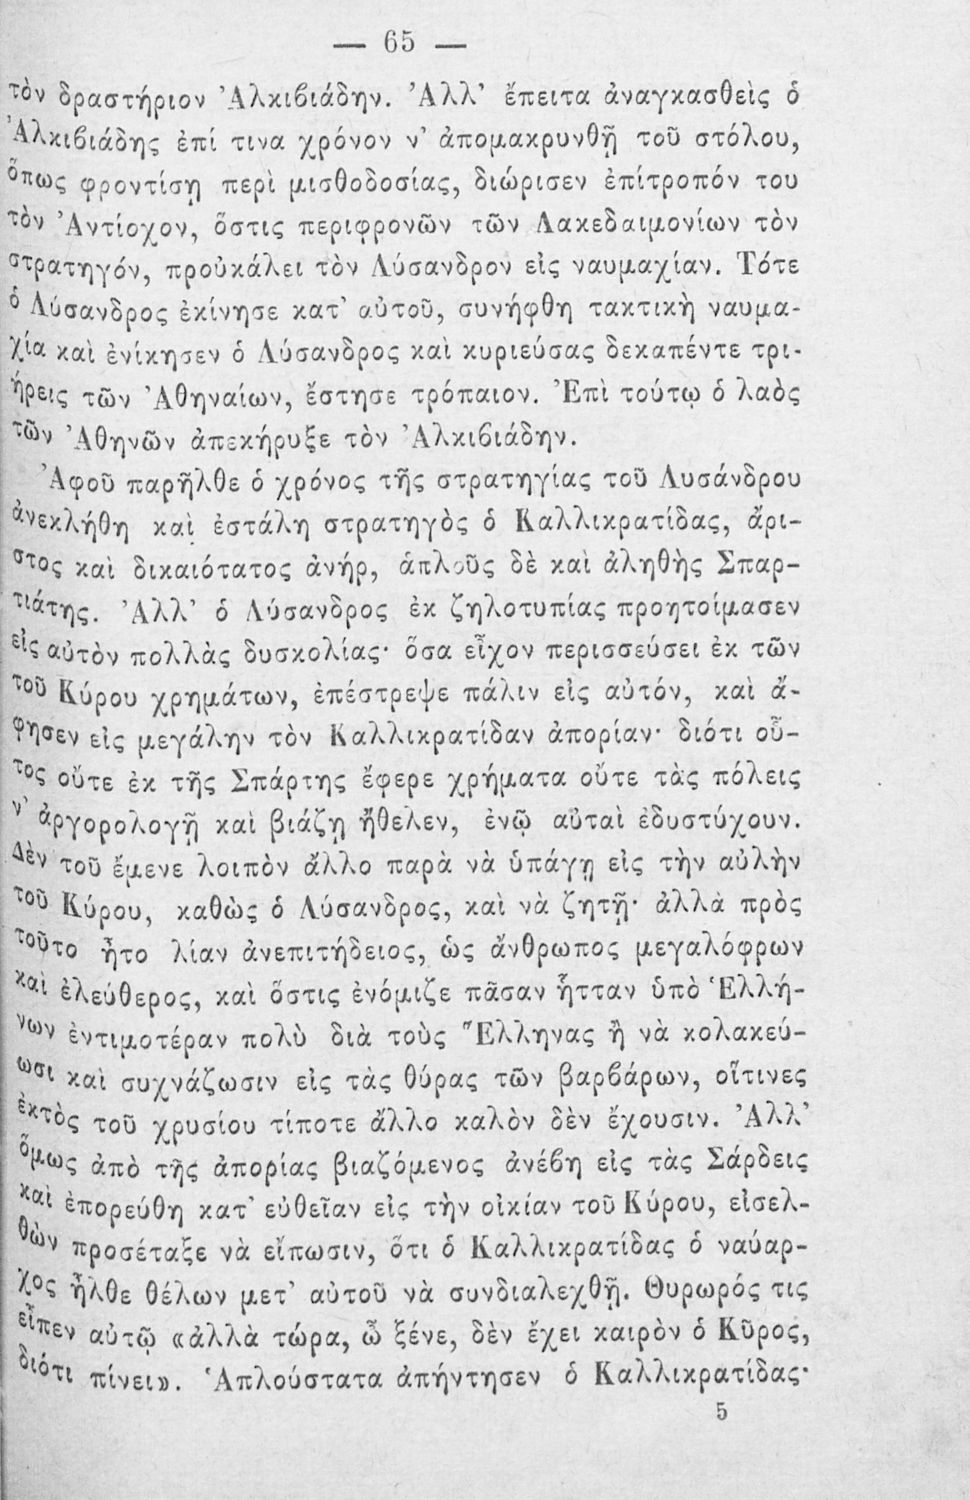 — 65 —
τὸν δραστήριον Ἀλκιβιάδην. Ἀλλ’ ἔπειτα ἀναγκασθεὶς ὁ
Ἀλκιβιάδης ἐπί τινα χρόνον ν’ ἀπομακρυνθῇ τοῦ στόλου,
ὅπως φροντίσῃ περὶ μισθοδοσίας, διώρισεν ἐπίτροπόν του
τὸν Ἀντίοχον, ὅστις περιφρονῶν τῶν Λακεδαιμονίων τὸν
στρατηγόν, προὐκάλει τὸν Λύσανδρον εἰς ναυμαχίαν. Τότε
ὁ Λύσανδρος ἐκίνησε κατ’ αὐτοῦ, συνήφθη τακτικὴ ναυμα-
χία καὶ ἐνίκησεν ὁ Λύσανδρος καὶ κυριεύσας δεκαπέντε τρι-
ήρεις τῶν Ἀθηναίων, ἔστησε τρόπαιον. Ἐπὶ τούτῳ ὁ λαὸς
τῶν Ἀθηνῶν ἀπεκήρυξε τὸν Ἀλκιβιάδην.
Ἀφοῦ παρῆλθε ὁ χρόνος τῆς στρατηγίας τοῦ Λυσάνδρου
ἀνεκλήθη καὶ ἐστάλη στρατηγὸς ὁ Καλλικρατίδας, ἄρι-
στος καὶ δικαιότατος ἀνήρ, ἁπλοῦς δὲ καὶ ἀληθὴς Σπαρ-
τιάτης. Ἀλλ’ ὁ Λύσανδρος ἐκ ζηλοτυπίας προητοίμασεν
εἰς αὐτὸν πολλὰς δυσκολίας· ὅσα εἶχον περισσεύσει ἐκ τῶν
τοῦ Κύρου χρημάτων, ἐπέστρεψε πάλιν εἰς αὐτόν, καὶ ἄ-
φησεν εἰς μεγάλην τὸν Καλλικρατίδαν ἀπορίαν· διότι οὗ-
τος οὔτε ἐκ τῆς Σπάρτης ἔφερε χρήματα οὔτε τὰς πόλεις
ν’ ἀργορολογῇ καὶ βιάζῃ ἤθελεν, ἐνῷ αὗται ἐδυστύχουν.
Δὲν τοῦ ἔμενε λοιπὸν ἄλλο παρὰ νὰ ὑπάγῃ εἰς τὴν αὐλὴν
τοῦ Κύρου, καθὼς ὁ Λύσανδρος, καὶ νὰ ζητῇ· ἀλλὰ πρὸς
τοῦτο ἦτο λίαν ἀνεπιτήδειος, ὡς ἄνθρωπος μεγαλόφρων
καὶ ἐλεύθερος, καὶ ὅστις ἐνόμιζε πᾶσαν ἧτταν ὑπὸ Ἑλλή-
νων ἐντιμοτέραν πολὺ διὰ τοὺς Ἕλληνας ἢ νὰ κολακεύ-
ωσι καὶ συχνάζωσιν εἰς τὰς θύρας τῶν βαρβάρων, οἵτινες
ἐκτὸς τοῦ χρυσίου τίποτε ἄλλο καλὸν δὲν ἔχουσιν. Ἀλλ’
ὅμως ἀπὸ τῆς ἀπορίας βιαζόμενος ἀνέβη εἰς τὰς Σάρδεις
καὶ ἐπορεύθη κατ’ εὐθεῖαν εἰς τὴν οἰκίαν τοῦ Κύρου, εἰσελ-
θὼν προσέταξε νὰ εἴπωσιν, ὅτι ὁ Καλλικρατίδας ὁ ναύαρ-
χος ἦλθε θέλων μετ’ αὐτοῦ νὰ συνδιαλεχθῇ. Θυρωρός τις
εἶπεν αὐτῷ «ἀλλὰ τώρα, ὦ ξένε, δὲν ἔχει καιρὸν ὁ Κῦρος,
διότι πίνει». Ἁπλούστατα ἀπήντησεν ὁ Καλλικρατίδας·
5